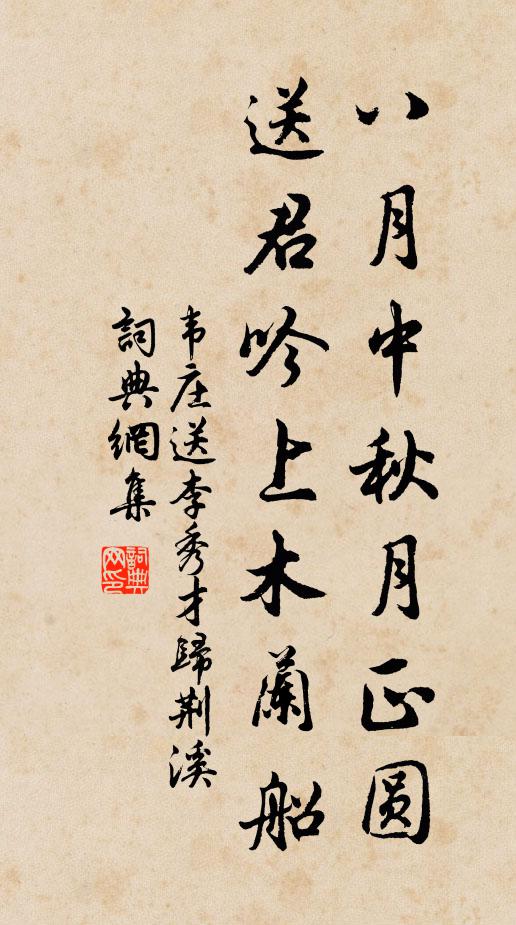 八月中秋月正圓
送君吟上木蘭船
韦庄送李秀才歸荆溪
詞典網集
詞典網印